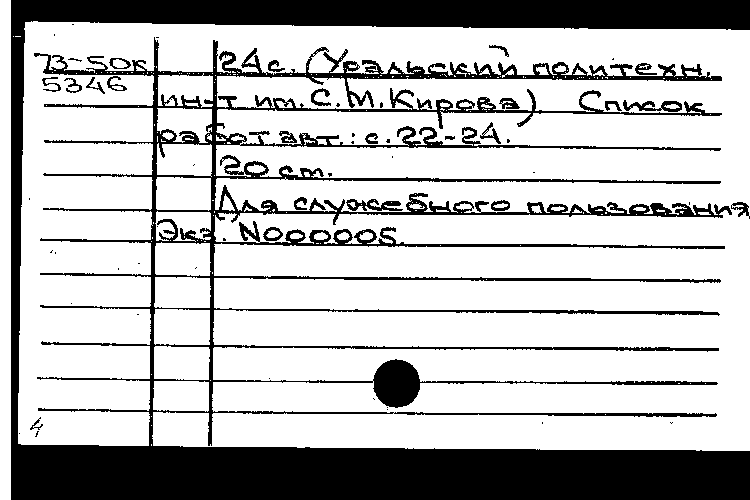 73-50к 24с. (Уральский политехн.
5346
ин-т им. С. М. Кирова). Список
работ авт.: с. 22-24.
20 см.
Для служебного пользования
Экз. N000005.
4